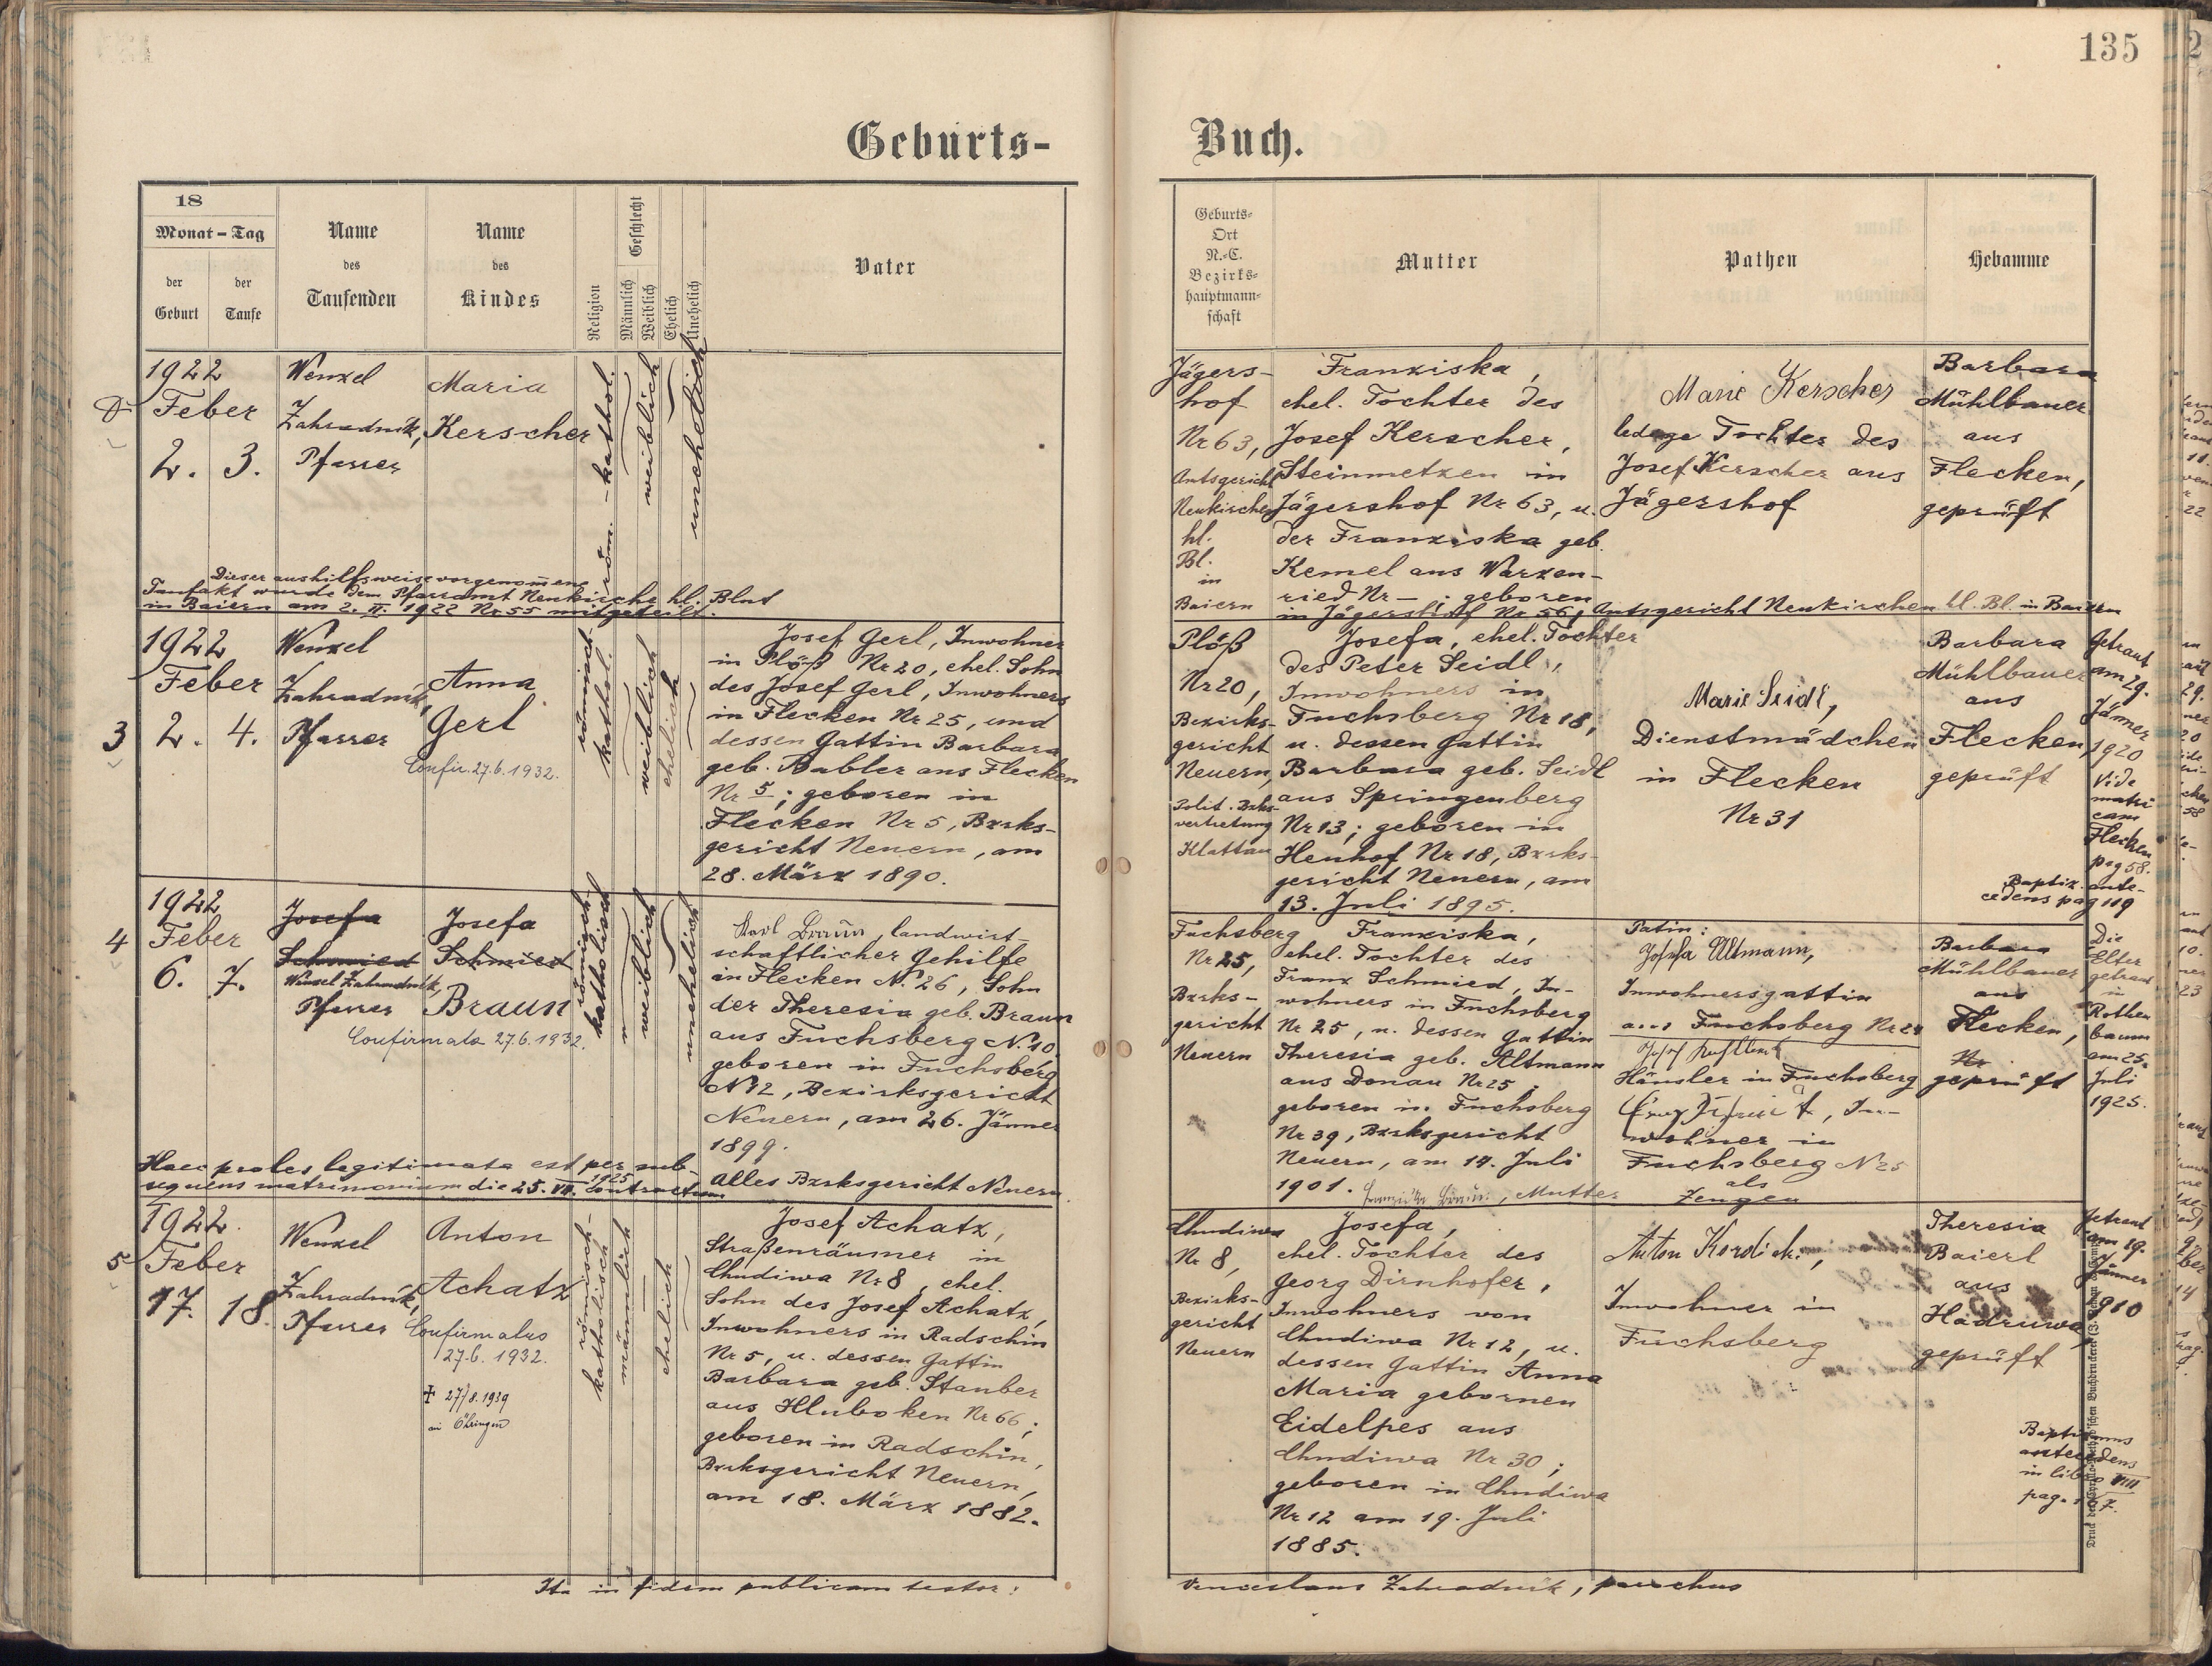 135
Geburts-Buch.
18
Monat - Tag
der Geburt
der Taufe
Name des Taufenden
Name des Kindes
Religion
Geschlecht
Männlich
Weiblich
Ehelich
Unehelich
Vater
Geburts-
Ort
N.-C.
Bezirks-
hauptmann-
schaft
Mutter
Pathen
Hebamme
1922
Feber
2. 3.
Wenzel
Zahradnik,
Pfarrer
Maria
Kerscher
röm.-kathol.
weiblich
unehelich
Dieser aushilfsweise vorgenom̄ene
Taufakt wurde dem Pfarramt Neukirchen hl. Blut
in Baiern am 2. II. 1922 Nr 55 mitgeteilt.
Jägers-
hof
Nr 63,
Amtsgericht
Neukirchen
hl.
Bl.
in
Baiern
Franziska,
ehel. Tochter des
Josef Kerscher,
Steinmetzen in
Jägershof Nr 63, u.
der Franziska geb.
Kemel aus Warzen-
ried Nr – ; geboren
in Jägershof Nr 56, Amtsgericht Neukirchen hl. Bl. in Baiern
Marie Kerscher
ledige Tochter des
Josef Kerscher aus
Jägershof
Barbara
Mühlbauer
aus
Flecken,
geprüft
3
1922
Feber
2. 4.
Wenzel
Zahradnik,
Pfarrer
Anna
Gerl
Confir. 27.6.1932.
römisch-
kathol.
weiblich
ehelich
Josef Gerl, Inwohner
in Plöß Nr 20, ehel. Sohn
des Josef Gerl, Inwohners
in Flecken Nr 25, und
dessen Gattin Barbara
geb. Babler aus Flecken
Nr 5; geboren in
Flecken Nr 5, Bzrks-
gericht Neuern, am
28. März 1890.
Plöß
Nr 20,
Bezirks-
gericht
Neuern,
Polit. Bzks-
vertretung
Klattau
Josefa, ehel. Tochter
des Peter Seidl,
Inwohners in
Fuchsberg Nr 18,
u. dessen Gattin
Barbara geb. Seidl
aus Springenberg
Nr 13; geboren in
Heuhof Nr 18, Bzrks-
gericht Neuern, am
13. Juli 1895.
Marie Seidl,
Dienstmädchen
in Flecken
Nr 31
Barbara
Mühlbauer
aus
Flecken,
geprüft
Getraut
am 29.
Jänner
1920
Vide
matri
cam
Flecken
pag 58.
Baptiz. ante-
cedens pag 119
4
1922
Feber
6. 7.
Josefa
Schmied
Wenzel Zahradnik,
Pfarrer
Josefa
Schmied
Braun
Confirmata 27.6.1932.
römisch-
katholisch
weiblich
unehelich
Karl Braun, landwirt-
schaftlicher Gehilfe
in Flecken N. 26, Sohn
der Theresia geb. Braun
aus Fuchsberg N. 10,
geboren in Fuchsberg
N 12, Bezirksgericht
Neuern, am 26. Jänner
1899.
Alles Bzrksgericht Neuern.
Haec proles legitimata est per sub-
sequens matrimonium die 25. VII. 1925 contractum
Fuchsberg
Nr 25,
Bzrks-
gericht
Neuern
Franziska,
ehel. Tochter des
Franz Schmied, In-
wohners in Fuchsberg
Nr 25, u. dessen Gattin
Theresia geb. Altmann
aus Donau Nr 25;
geboren in Fuchsberg
Nr 39, Bzrksgericht
Neuern, am 14. Juli
1901. Franziska Braun, Mutter
Patin:
Josefa Altmann,
Inwohnersgattin
aus Fuchsberg Nr 24
Josef
Häusler in Fuchsberg
In-
wohner in
Fuchsberg N 25
als
Zeugen
Barbara
Mühlbauer
aus
Flecken,
Nr
geprüft
Die
Elter
getraut
in
Rothen
baum
am 25.
Juli
1925.
5
1922.
Feber
17. 18.
Wenzel
Zahradnik,
Pfarrer
Anton
Achatz
Confirmatus
27.6. 1932.
✝ 27/8. 1939
in Öhringen
römisch-
katholisch
männlich
ehelich
Josef Achatz,
Straßenräumer in
Chudiwa Nr 8, ehel.
Sohn des Josef Achatz,
Inwohners in Radschin
Nr 5, u. dessen Gattin
Barbara geb. Stauber
aus Hluboken Nr 66;
geboren in Radschin,
Bzrksgericht Neuern,
am 18. März 1882.
Chudiwa
Nr 8,
Bezirks-
gericht
Neuern
Josefa,
ehel. Tochter des
Georg Dirnhofer,
Inwohners von
Chudiwa Nr 12, u.
dessen Gattin Anna
Maria gebornen
Eidelpes aus
Chudiwa Nr 30;
geboren in Chudiwa
Nr 12 am 19. Juli
1885.
Anton Kordick,
Inwohner in
Fuchsberg
Theresia
Baierl
aus
Hadruwa,
geprüft
Getraut
am 19.
Jänner
1910
Baptismus
antecedens
in libro VIII
Ita in fidem publicam testor:
Venceslaus Zahradnik, parochus